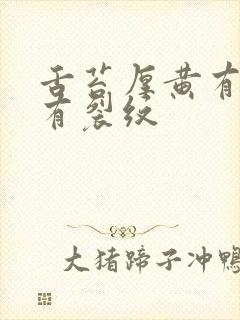 舌苔厚黄有
有裂纹
大猪蹄子冲鸭